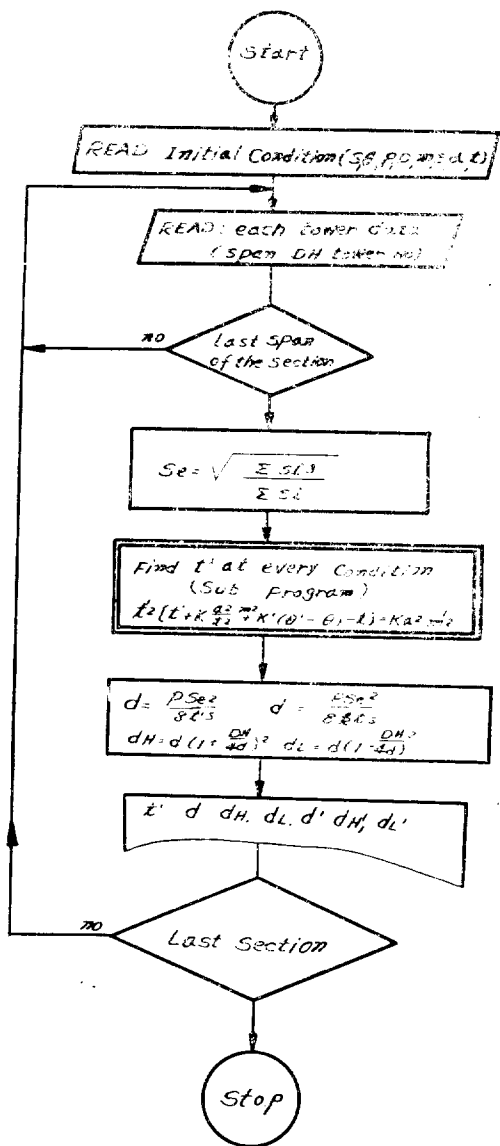 Start
READ Initial Condition (
READ: each tower data
(span DH tower No)
Last span
of the section
no
Se = √ Σ Si³ / Σ Si
Find t' at every Condition
(Sub Program)
t'² {t' + K a² m² / t² + K' (θ' - θ) - t} = K a² m'²
d = PSe² / 8t's d = PSe² / 8t's
dH = d (1 + DH / 4d)² dL = d (1 - DH / 4d)²
t' d dH. dL. d' dH', dL'
no
Last Section
Stop